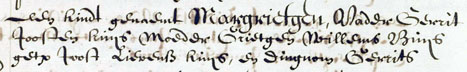 Een kindt genaemt Margrietgen, Vadder Gerrit
Joosten kuijs Modder Grietgen Willems
get Joost Lievenss kuijs, en Dingnom Gerrits